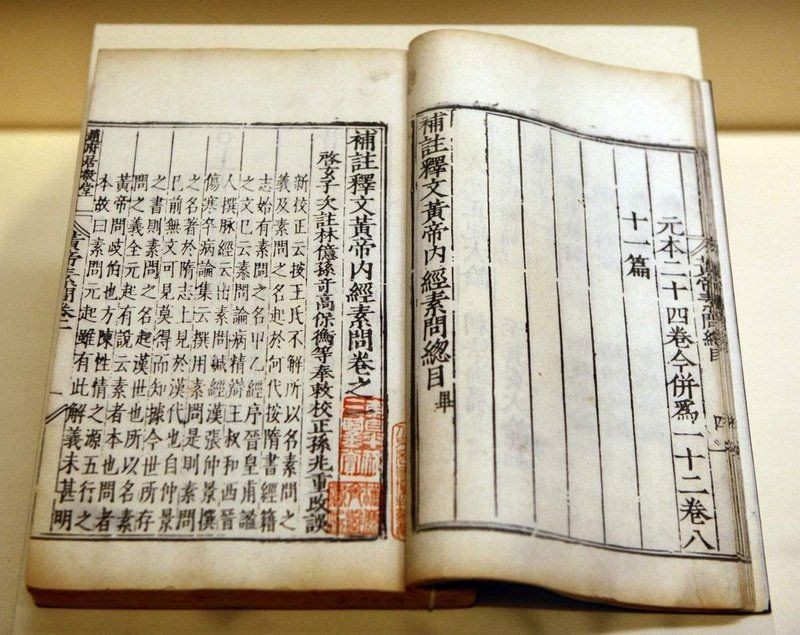 黃帝素問總目
四
元本二十四卷今併爲一十二卷八
十一篇
補註釋文黃帝內經素問總目 畢
補註釋文黃帝內經素問卷之
啓玄子次註林億孫奇高保衡等奉敕校正孫兆重改誤
新校正云按王氏不解所以名素問之
義及素問之名起於何代按隋書經籍
志始有素問之名甲乙經序晉皇甫謐
之文已云素問論病精辯王叔和西晉
人撰脉經云出素問鍼經漢張仲景撰
傷寒卒病論集云撰用素問是則素問
之名著於隋志上見於漢代也自仲景
已前無文可見莫得而知據今世所存
之書則素問之名起漢世也所以名素
問之義全元起有說云素者本也問者
黃帝問歧伯也方陳性情之源五行之
本故曰素問元起雖有此解義未甚明
趙府居敬堂 黃帝素問卷一